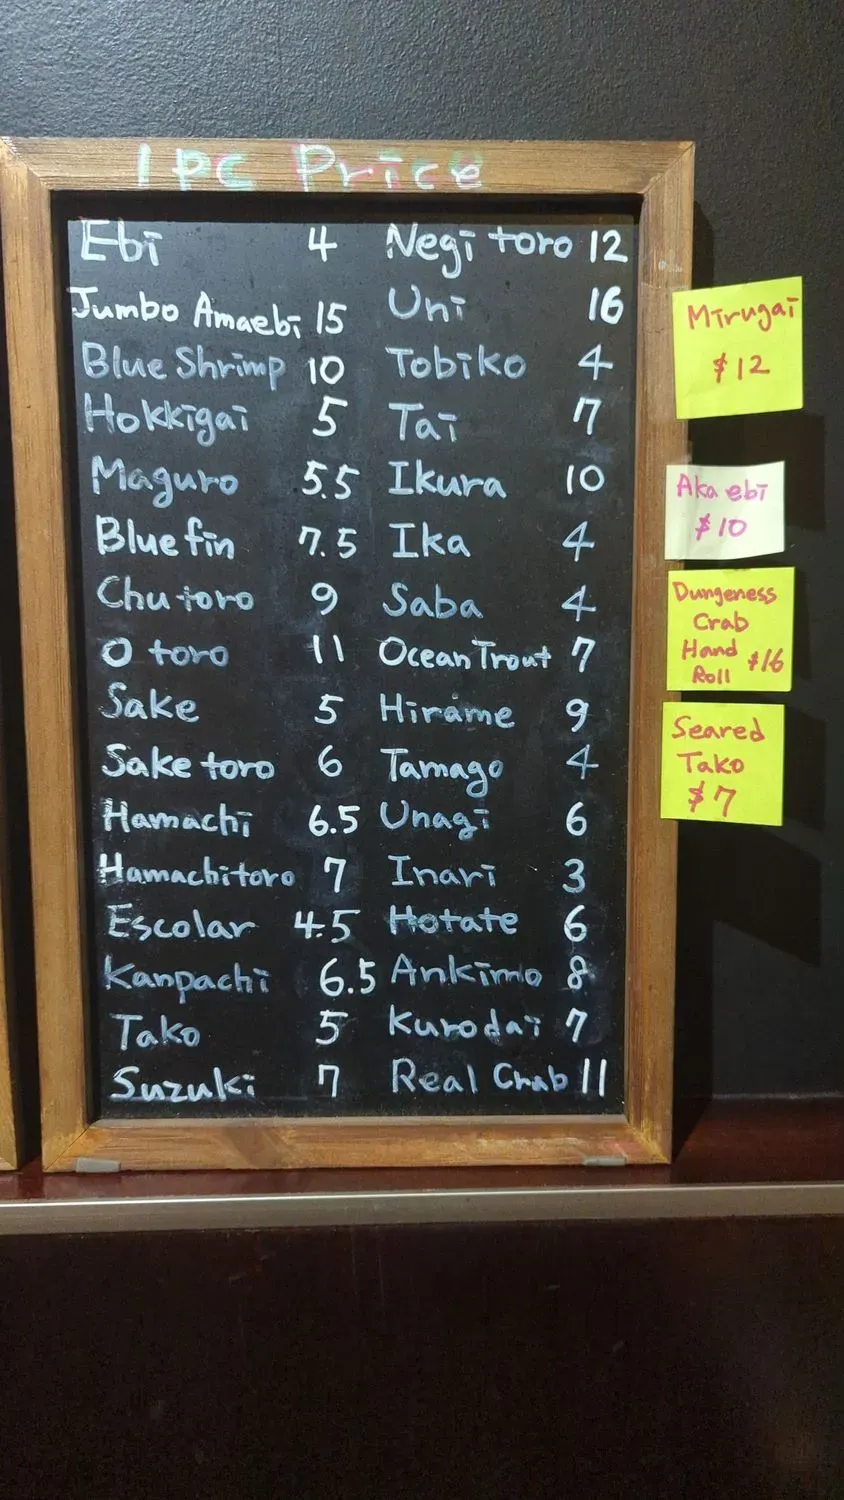 1 PC Price
Ebi 4
Jumbo Amaebi 15
Blue Shrimp 10
Hokkigai 5
Maguro 5.5
Blue fin 7.5
Chu toro 9
O toro 11
Sake 5
Sake toro 6
Hamachi 6.5
Hamachi toro 7
Escolar 4.5
Kanpachi 6.5
Tako 5
Suzuki 7
Negi toro 12
Uni 16
Tobiko 4
Tai 7
Ikura 10
Ika 4
Saba 4
Ocean Trout 7
Hirame 9
Tamago 4
Unagi 6
Inari 3
Hotate 6
Ankimo 8
Kurodai 7
Real Crab 11
Mirugai
$12
Aka ebi
$10
Dungeness
Crab
Hand
Roll $16
Seared
Tako
$7